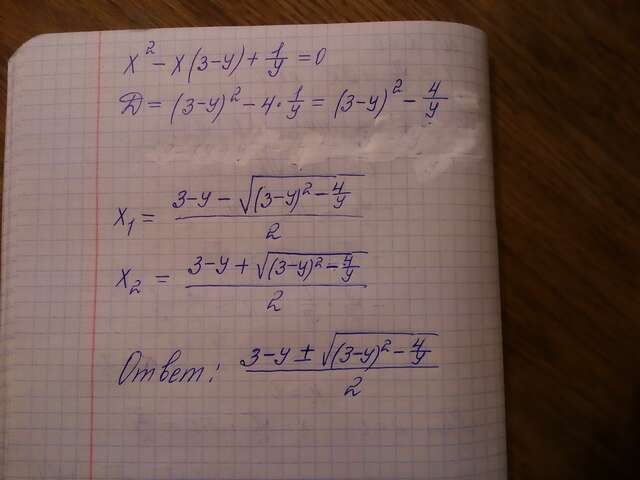 x² − x(3−y) + 1/y = 0
Д = (3−y)² − 4·1/y = (3−y)² − 4/y
x₁ = (3−y − √((3−y)² − 4/y))/2
x₂ = (3−y + √((3−y)² − 4/y))/2
Ответ: (3−y ± √((3−y)² − 4/y))/2